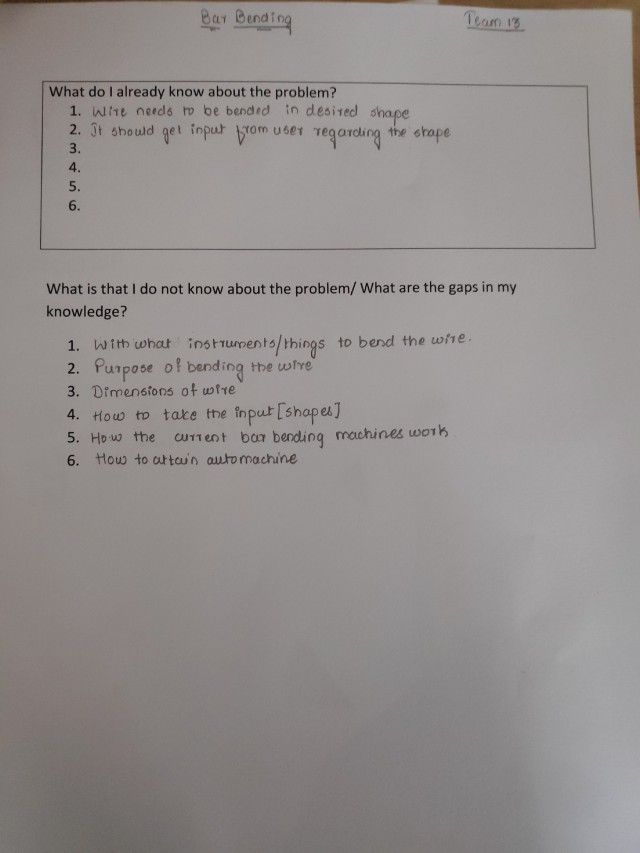 Bar Bending
Team 13
What do I already know about the problem?
1. Wire needs to be bended in desired shape
2. It should get input from user regarding the shape
3.
4.
5.
6.
What is that I do not know about the problem/ What are the gaps in my
knowledge?
1. With what instruments/things to bend the wire.
2. Purpose of bending the wire
3. Dimensions of wire
4. How to take the input [shapes]
5. How the current bar bending machines work
6. How to attain automachine